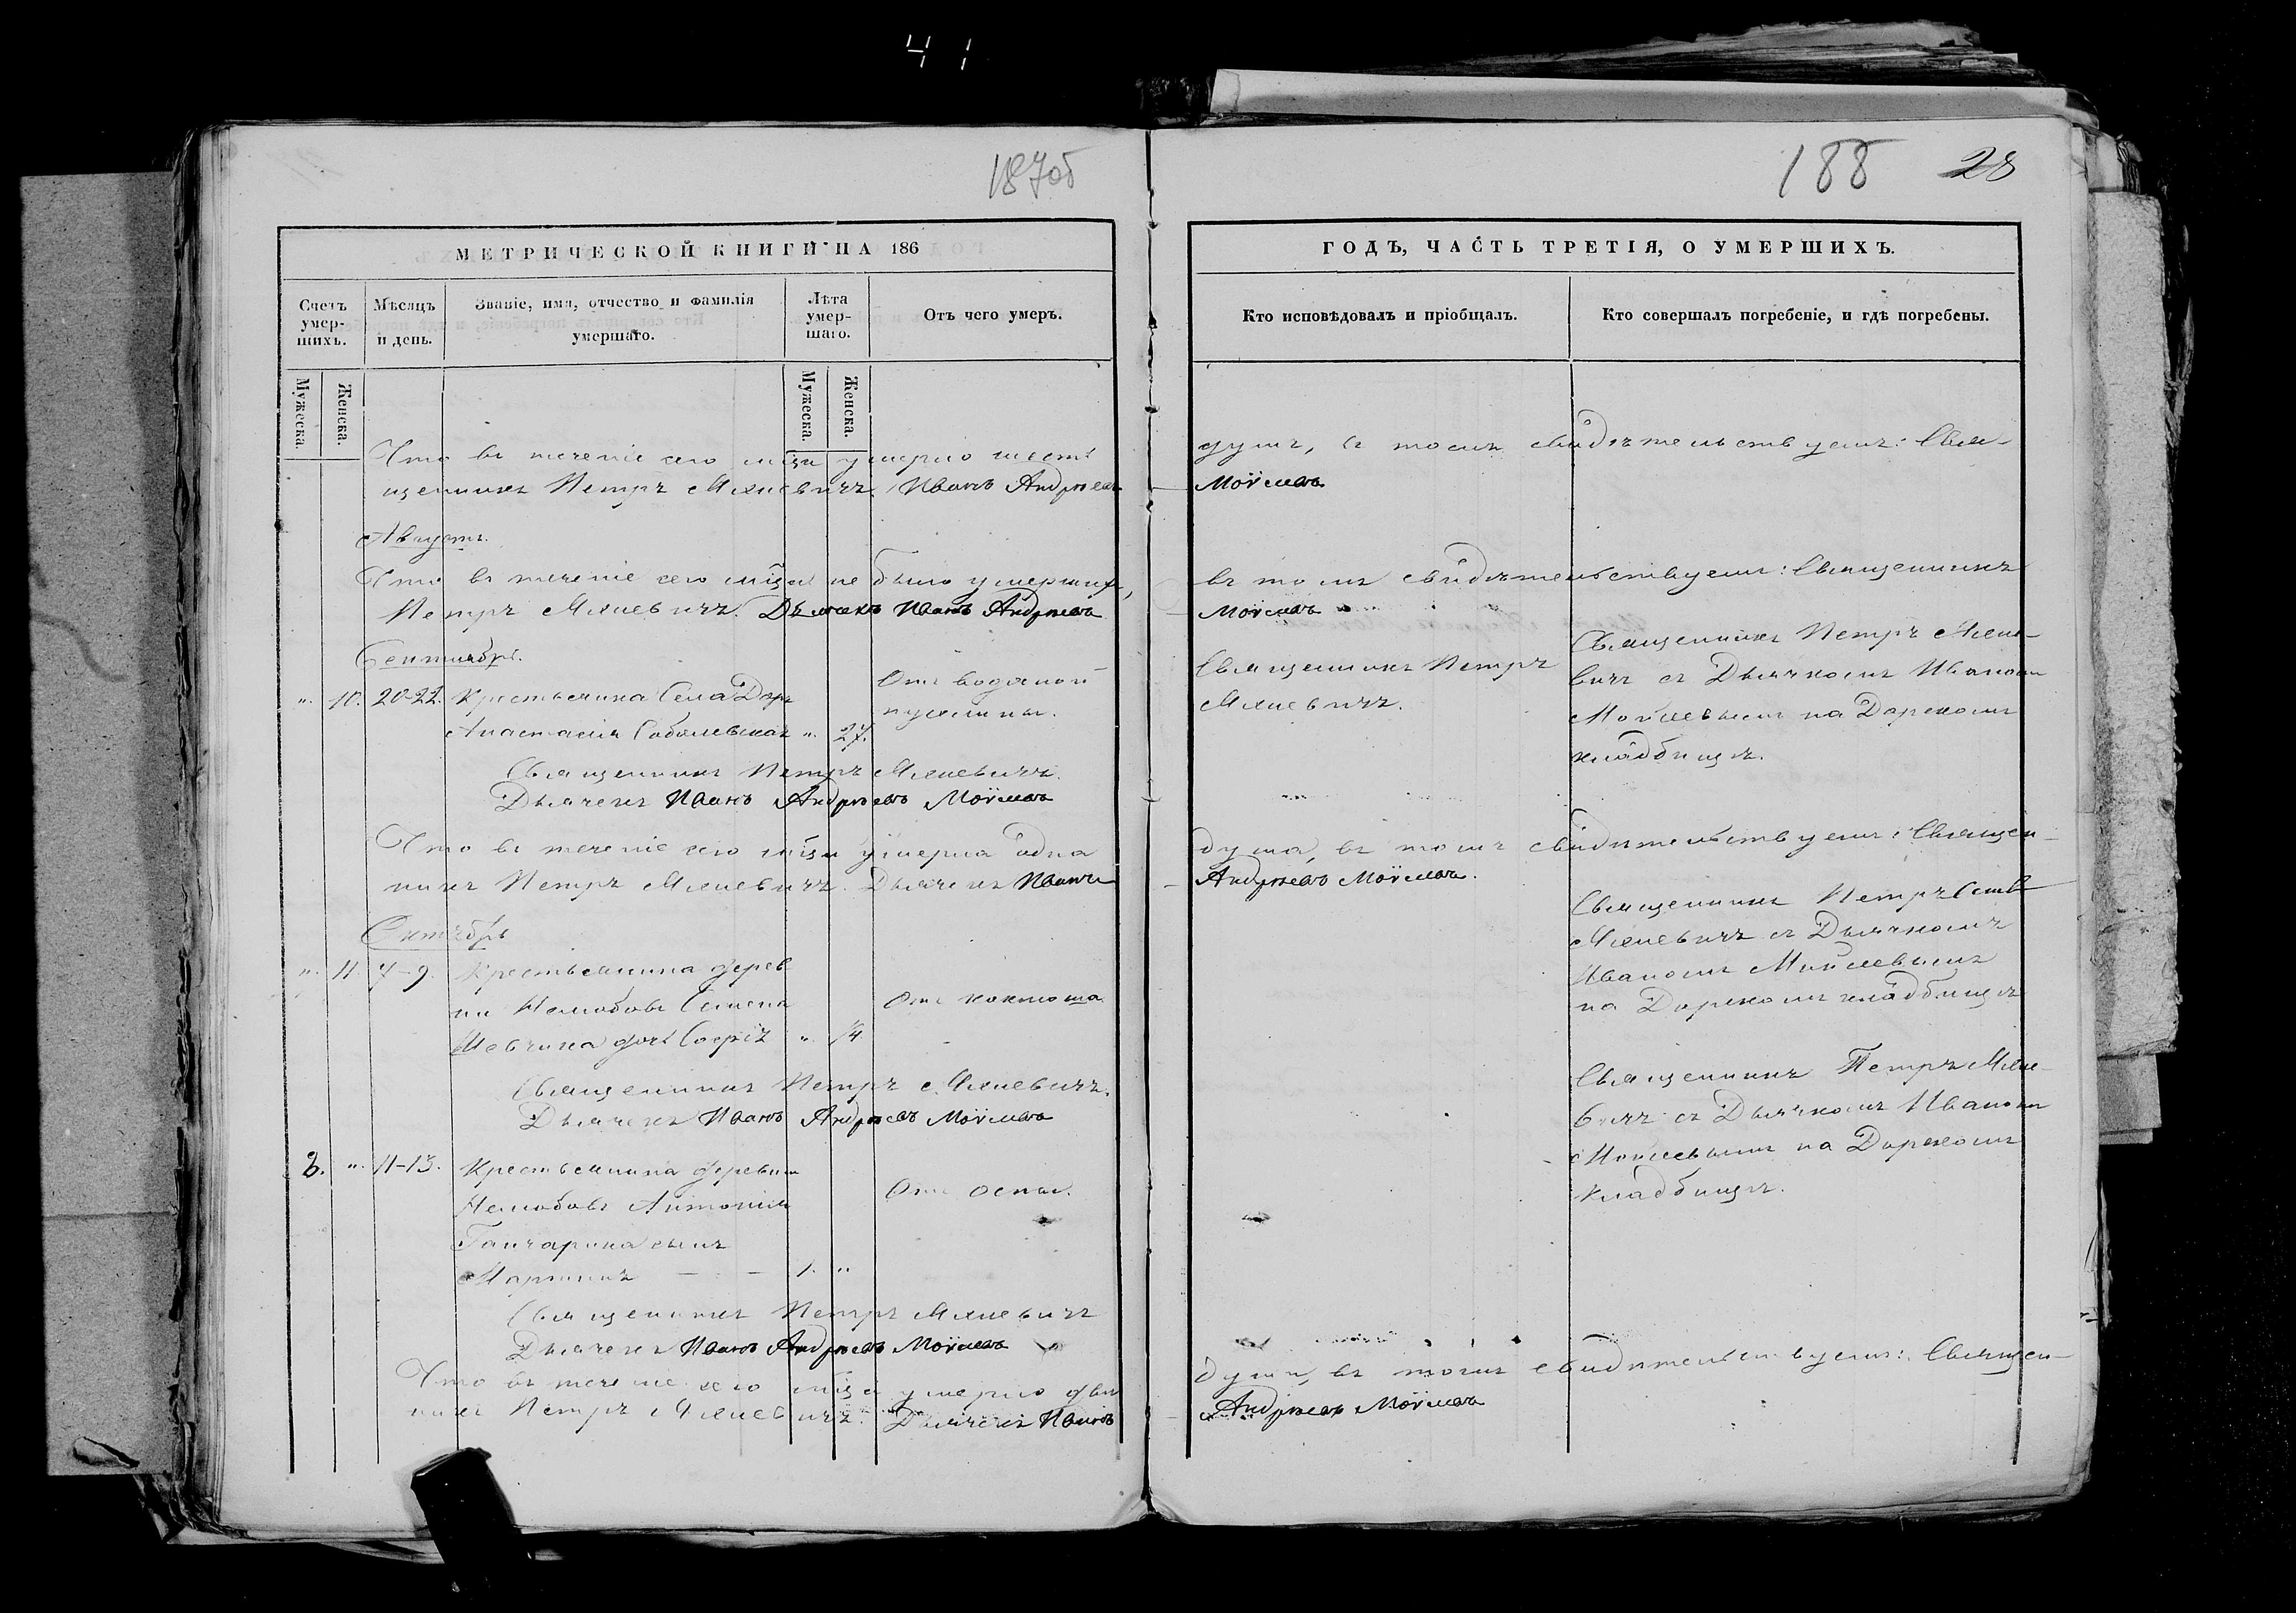 41
187об
188 28
МЕТРИЧЕСКОЙ КНИГИ НА 186
Счетъ умер- шихъ.
Мѣсяцъ и день.
Званіе, имя, отчество и фамилія умершаго.
Лѣта умер- шаго.
Отъ чего умеръ.
Мужеска.
Женска.
Мужеска.
Женска.
Что въ теченіе сего мѣсца умерло шесть
щенникъ Петръ Михневичъ. Иванъ Андреевъ
Августъ.
Что въ теченіе сего мѣсца не было умершихъ,
Петръ Михневичъ. Дьячекъ Иванъ Андреевъ
Сентябрь.
„ 10. 20-22. Крестьянина Села Доръ
Анастасія Соболевская „ 27.
Отъ водяной
пухлины.
Священникъ Петръ Михневичъ.
Дьячекъ Иванъ Андреевъ Моѵсеевъ
Что въ теченіе сего мѣсца умерла одна
никъ Петръ Михневичъ. Дьячекъ Иванъ
Октябрь
„ 11. 7-9. Крестьянина дерев
ни Нелюбовъ Семена
дочь Софія „ 14
Отъ коклюша
Священникъ Петръ Михневичъ.
Дьячекъ Иванъ Андреевъ Моѵсеевъ
8. „ 11-13. Крестьянина деревни
Нелюбовъ Антонія
Ганчарика сынъ
Мартинъ — — 1. „
Отъ оспы.
Священникъ Петръ Михневичъ
Дьячекъ Иванъ Андреевъ Моѵсеевъ
Что въ теченіе сего мѣсца умерло двѣ
никъ Петръ Михневичъ. Дьячекъ Иванъ
ГОДЪ, ЧАСТЬ ТРЕТІЯ, О УМЕРШИХЪ.
Кто исповѣдовалъ и пріобщалъ.
Кто совершалъ погребеніе, и гдѣ погребены.
душъ, въ томъ свидѣтельствуемъ: Свя-
Моѵсеевъ
въ томъ свидѣтельствуемъ: Священникъ
Моѵсеевъ
Священникъ Петръ
Михневичъ.
Священникъ Петръ Михне-
вичъ съ Дьячкомъ Иваномъ
Мойсеевымъ на Дорскомъ
кладбищѣ.
душа, въ томъ свидѣтельствуемъ: Священ-
Андреевъ Моѵсеевъ.
Священникъ Петръ
Михневичъ съ Дьячкомъ
Иваномъ Мойсеевымъ
на Дорскомъ кладбищѣ
Священникъ Петръ Михне-
вичъ съ Дьячкомъ Иваномъ
Мойсеевымъ на Дорскомъ
кладбищѣ.
души, въ томъ свидѣтельствуемъ: Священ-
Андреевъ Моѵсеевъ